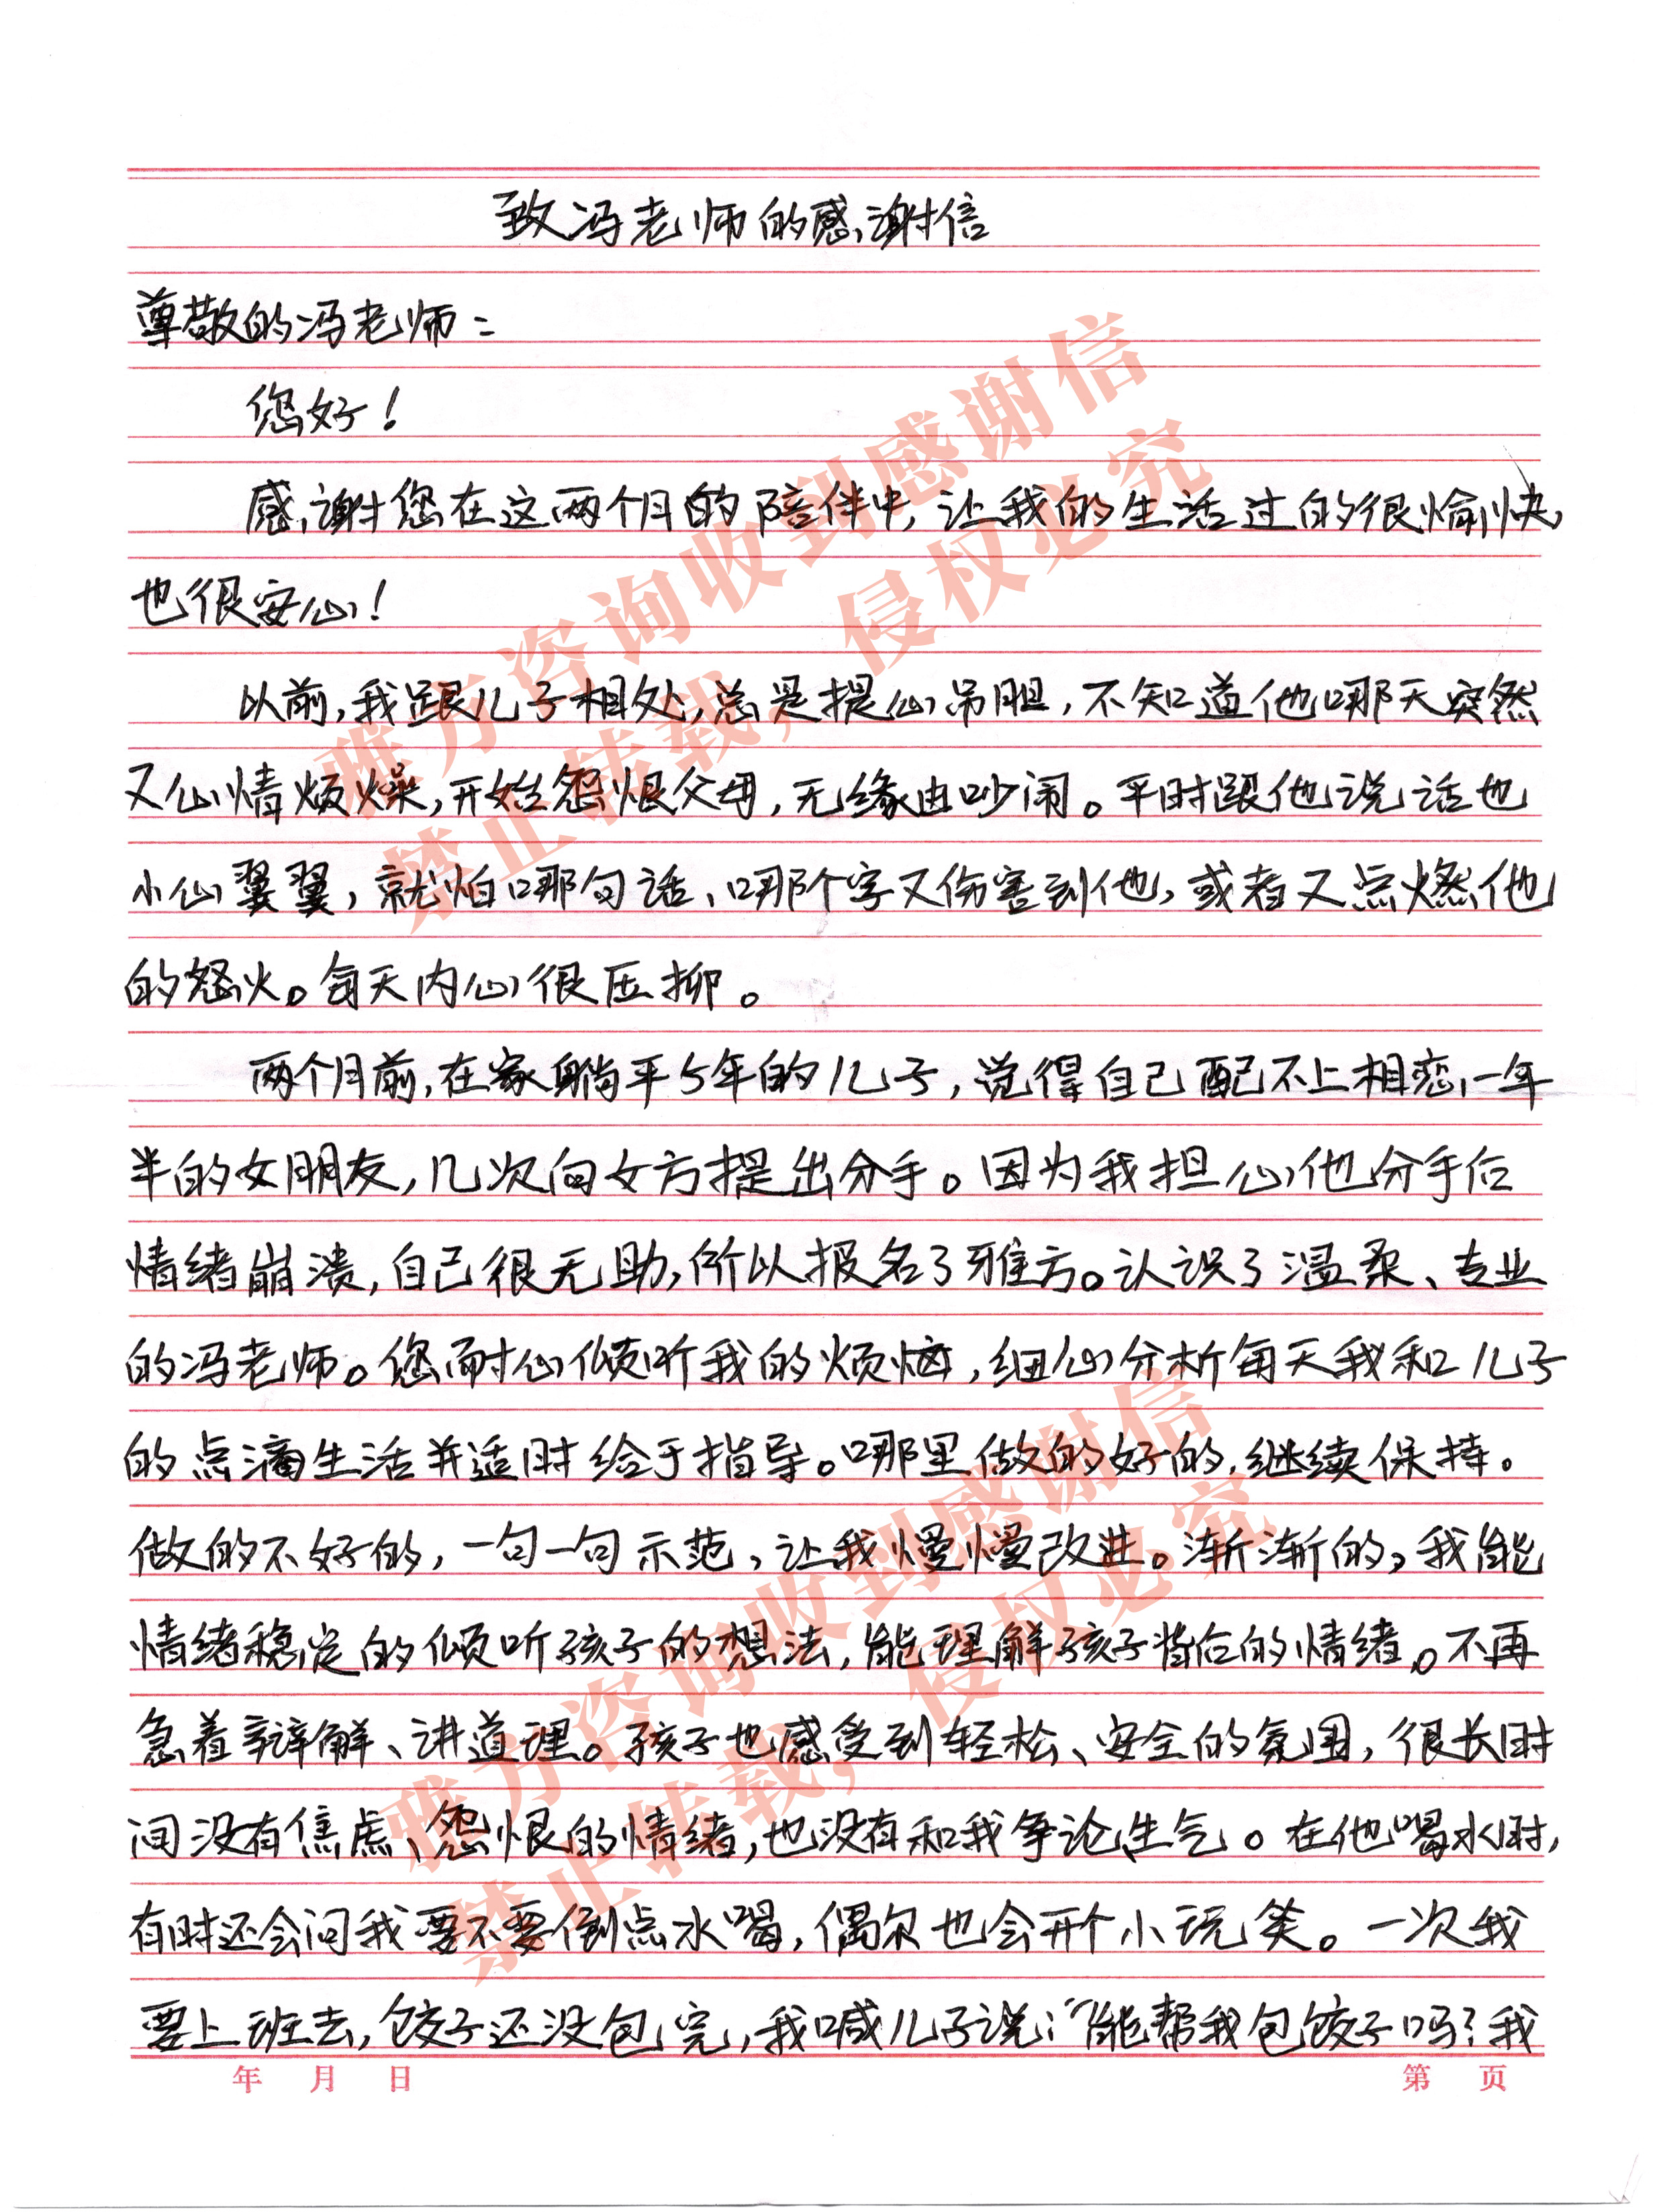 致冯老师的感谢信
尊敬的冯老师：
您好！
感谢您在这两个月的陪伴中，让我的生活过的很愉快，
也很安心！
以前，我跟儿子相处，总是提心吊胆，不知道他哪天突然
又心情烦燥，开始怨恨父母，无缘由吵闹。平时跟他说话也
小心翼翼，就怕哪句话、哪个字又伤害到他，或者又点燃他
的怒火。每天内心很压抑。
两个月前，在家躺平5年的儿子，觉得自己配不上相恋一年
半的女朋友，几次向女方提出分手。因为我担心他分手后
情绪崩溃，自己很无助，所以报名了雅方。认识了温柔、专业
的冯老师。您耐心倾听我的烦恼，细心分析每天我和儿子
的点滴生活并适时给于指导。哪里做的好的，继续保持。
做的不好的，一句一句示范，让我慢慢改进。渐渐的，我能
情绪稳定的倾听孩子的想法，能理解孩子背后的情绪。不再
急着辩解、讲道理。孩子也感受到轻松、安全的氛围，很长时
间没有焦虑、怨恨的情绪，也没有和我争论生气。在他喝水时，
有时还会问我要不要倒点水喝，偶尔也会开个小玩笑。一次我
要上班去，饺子还没包完，我喊儿子说："能帮我包饺子吗？我
年 月 日
第 页
雅方咨询收到感谢信
禁止转载，侵权必究
雅方咨询收到感谢信
禁止转载，侵权必究